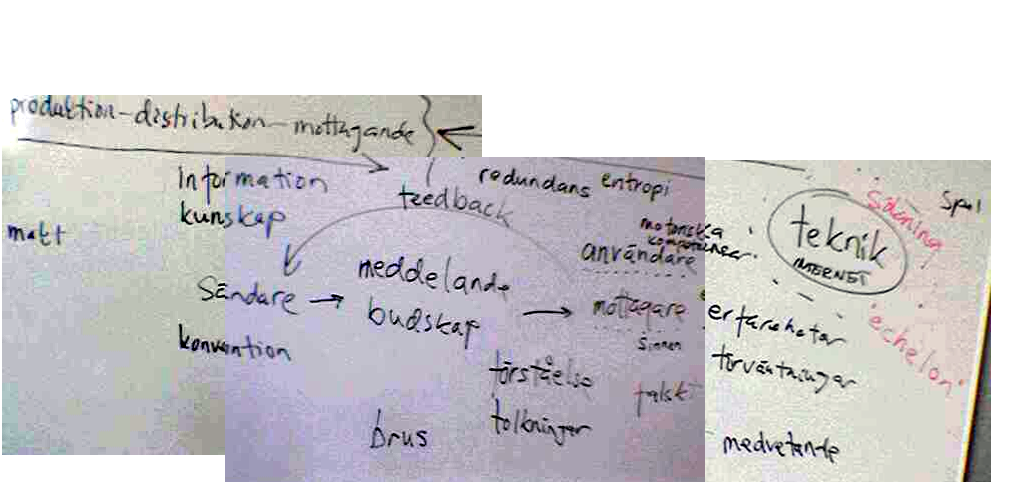 produktion-distribution-mottagande
information
kunskap
makt
redundans entropi
feedback
motoriska
kompetenser
användare
teknik
INTERNET
sökning
Spel
meddelande
Sändare → budskap → mottagare
sinnen
konvention
erfarenheter
förväntningar
"echelon"
förståelse
tolkningar
falskt
brus
medvetande